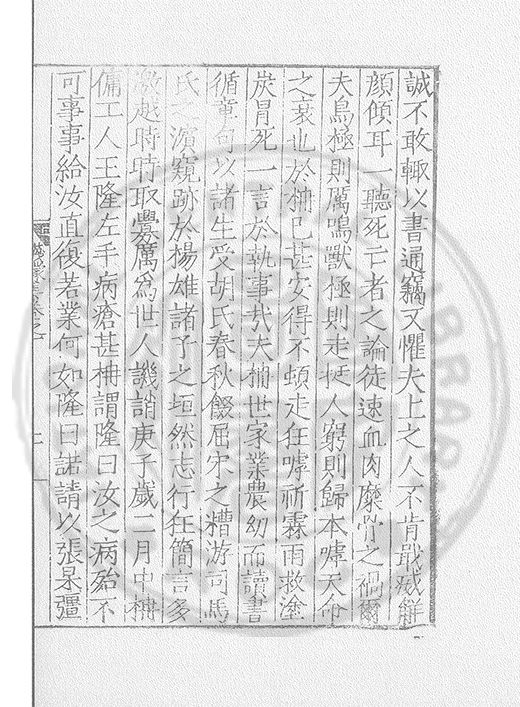 誠不敢輙以書通竊又懼夫上之人不肯戢威鮮
顔傾耳一聽死亡者之論徒速血肉糜骨之禍爾
夫鳥極則厲鳴獸極則走挺人窮則歸本嘑天命
之衰也於柟已甚安得不頓走狂嘑祈霖雨救塗
炭冒死一言於執事哉夫柟世家業農幼而讀書
循童句以諸生受胡氏春秋餟屈宋之糟游司馬
氏之濵窺跡於揚雄諸子之垣然志行狂簡言多
激越時時取釁厲爲世人譏誚庚子歲二月中柟
傭工人王隆左手病瘡甚柟謂隆曰汝之病殆不
可事事給汝直復若業何如隆曰諾請以張杲疆